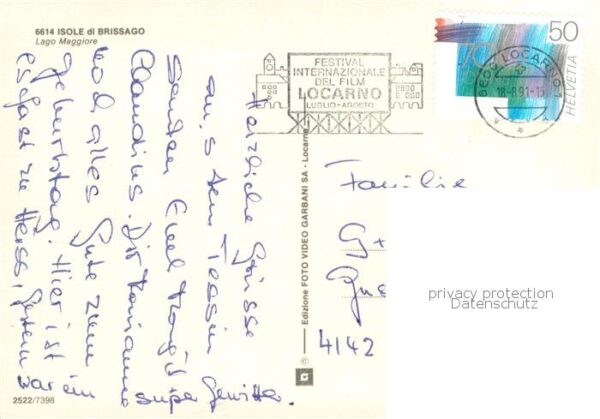 6614 ISOLE di BRISSAGO
Lago Maggiore
FESTIVAL
INTERNAZIONALE
DEL FILM
LOCARNO
LUGLIO-AGOSTO
50
HELVETIA
6600 LOCARNO 1
18-8.91-15
Herzliche Grüsse
aus dem Tessin
senden Euch
Claudius
und alles Gute zum
Geburtstag. Hier ist
es fast zu heiss, gestern
war ein
super Gewitter.
Familie
4142
Edizione FOTO VIDEO GARBANI SA - Locarno
©
2522/7398
privacy protection
Datenschutz